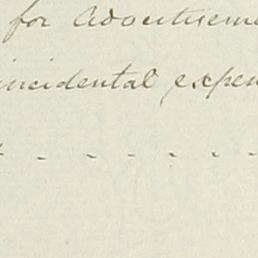 for Advertiseme
incidental expen